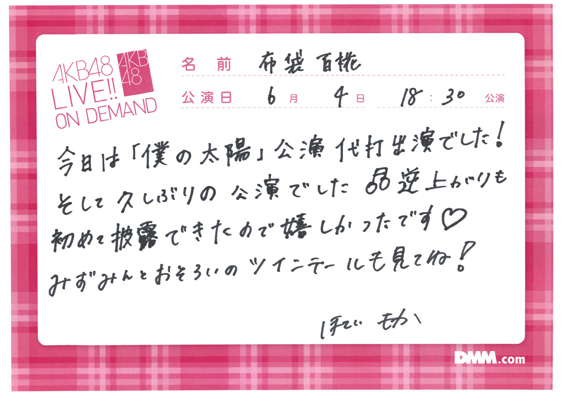 AKB48
LIVE!!
ON DEMAND
AKB
48
名 前 布袋 百椛
公演日 6 月 4 日 18 : 30 公演
今日は「僕の太陽」公演 代打出演でした!
そして久しぶりの 公演でした 逆上がりも
初めて披露できたので嬉しかったです♡
みずみんとおそろいのツインテールも見てね!
ほてい もか
DMM.com